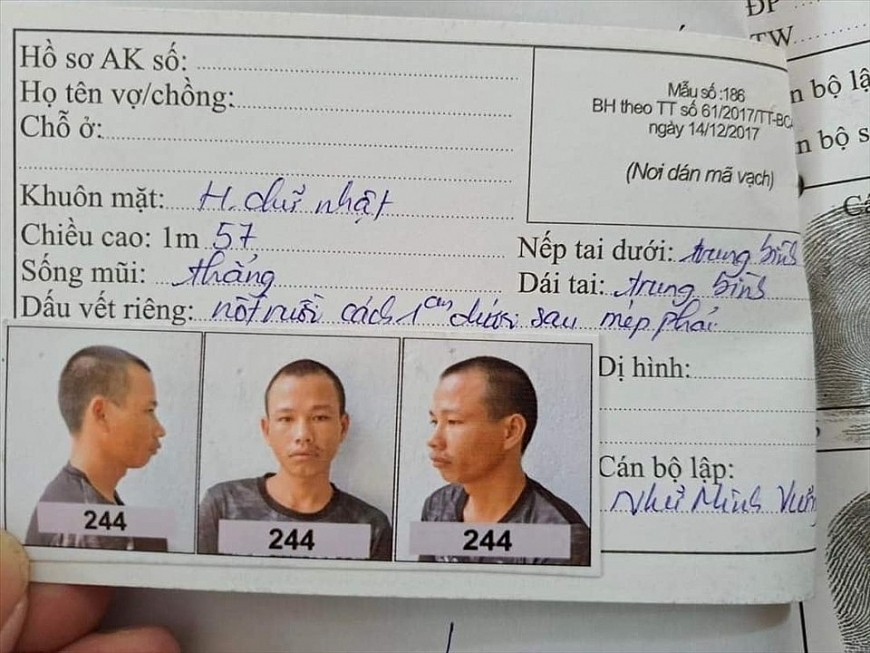 ĐP
TW
Hồ sơ AK số:
Họ tên vợ/chồng:
Chỗ ở:
Mẫu số :186
BH theo TT số 61/2017/TT-BCA
ngày 14/12/2017
(Nơi dán mã vạch)
n bộ lậ
n bộ s
Khuôn mặt: H. chữ nhật
Chiều cao: 1m 57
Nếp tai dưới: trung bình
Sống mũi: thẳng
Dái tai: trung bình
Dấu vết riêng: nốt ruồi cách 1cm dưới sau mép phải
Dị hình:
Cán bộ lập:
Như Minh
244
244
244